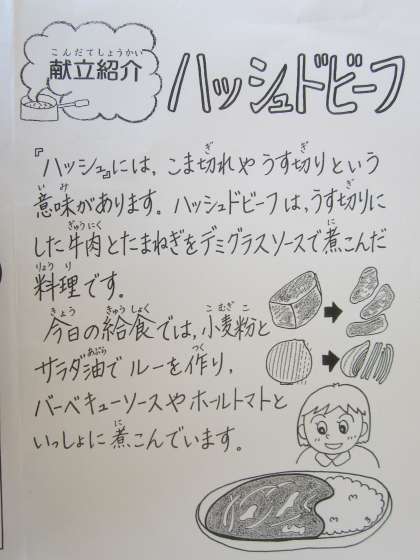 こんだてしょうかい
献立紹介
ハッシュドビーフ
『ハッシュ』には、こま切れや うす切りという
意味があります。ハッシュドビーフは、うす切りに
した牛肉とたまねぎをデミグラスソースで煮こんだ
料理です。
今日の給食では、小麦粉と
サラダ油で ルーを作り、
バーベキューソースや ホールトマトと
いっしょに煮こんでいます。